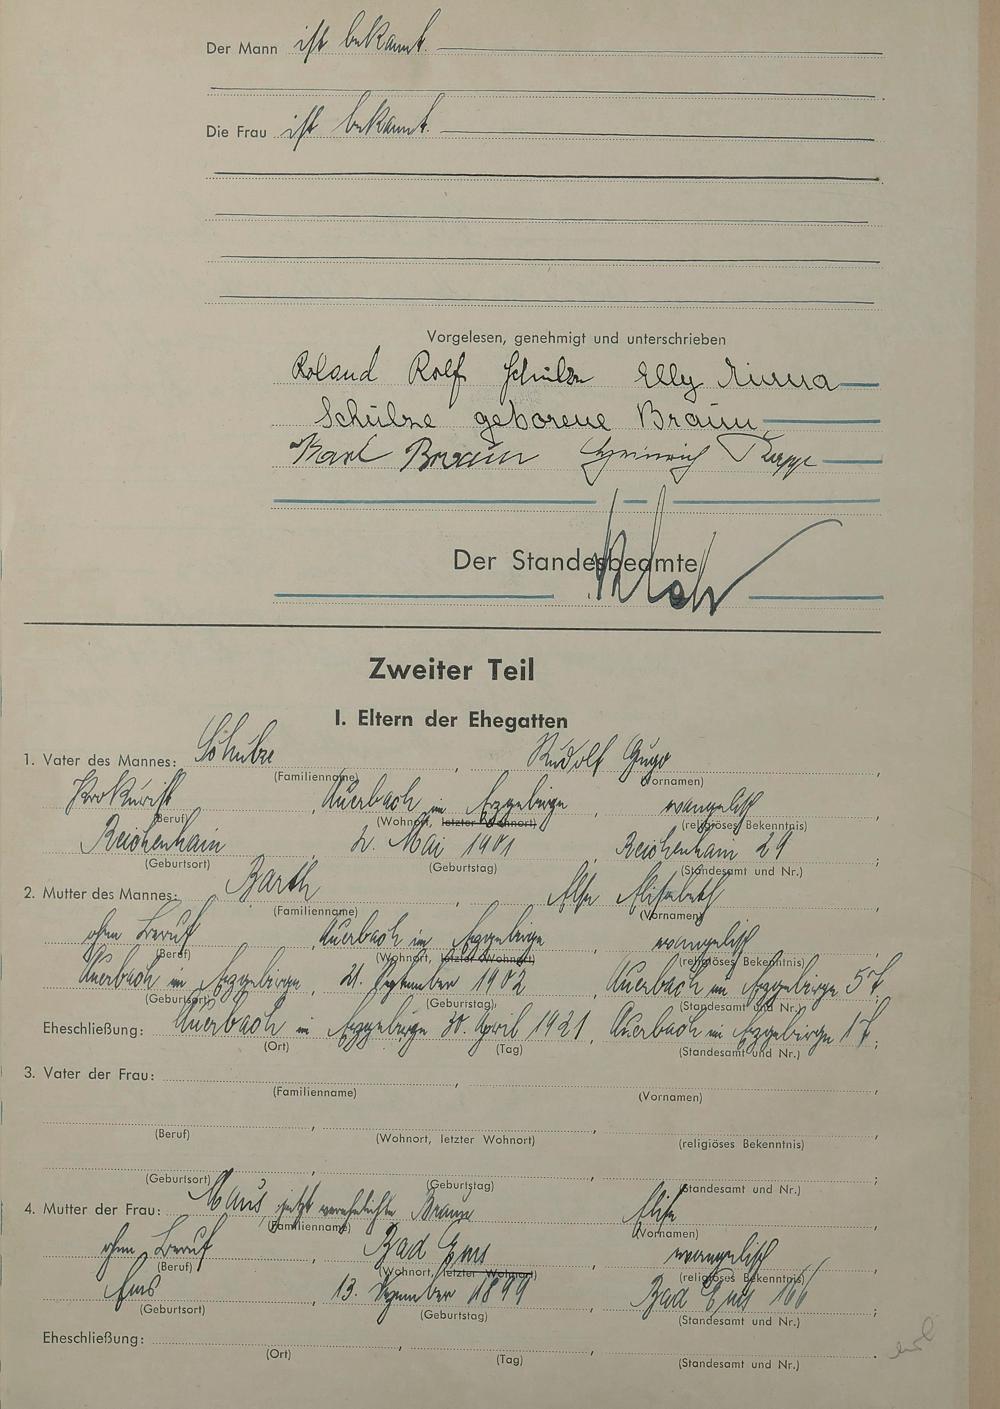 Der Mann ist bekannt.
Die Frau ist bekannt.
Vorgelesen, genehmigt und unterschrieben
Roland Rolf Schulze Elly Minna
Schulze geborene Braun
Karl Braun Heinrich
Der Standesbeamte
Zweiter Teil
I. Eltern der Ehegatten
1. Vater des Mannes: Schulze, Rudolf Hugo,
(Familienname) (Vornamen)
Prokurist, Auerbach im Erzgebirge, evangelisch
(Beruf) (Wohnort, letzter Wohnort) (religiöses Bekenntnis)
Reichenhain, 2. Mai 1901, Reichenhain 29;
(Geburtsort) (Geburtstag) (Standesamt und Nr.)
2. Mutter des Mannes: Barth, Elisabeth,
(Familienname) (Vornamen)
ohne Beruf, Auerbach im Erzgebirge, evangelisch
(Beruf) (Wohnort, letzter Wohnort) (religiöses Bekenntnis)
Auerbach im Erzgebirge, 21. September 1902, Auerbach im Erzgebirge 57,
(Geburtsort) (Geburtstag) (Standesamt und Nr.)
Eheschließung: Auerbach im Erzgebirge 30. April 1921, Auerbach im Erzgebirge 17;
(Ort) (Tag) (Standesamt und Nr.)
3. Vater der Frau:
(Familienname) (Vornamen)
(Beruf) (Wohnort, letzter Wohnort) (religiöses Bekenntnis)
(Geburtsort) (Geburtstag) (Standesamt und Nr.)
4. Mutter der Frau: Maus, jetzt verehelichte
(Familienname) (Vornamen)
ohne Beruf, Bad Ems, evangelisch
(Beruf) (Wohnort, letzter Wohnort) (religiöses Bekenntnis)
Ems, 13. Dezember 1899, Bad Ems 166;
(Geburtsort) (Geburtstag) (Standesamt und Nr.)
Eheschließung:
(Ort) (Tag) (Standesamt und Nr.)